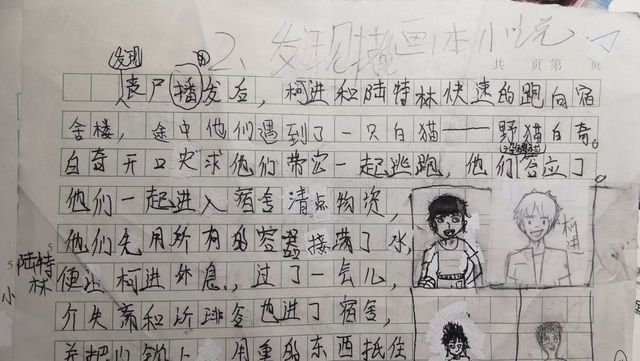 2、发现插画本小说
共 页第 页
发现 一的
丧尸播发后，柯进和陆特林快速的跑向宿
舍楼，途中他们遇到了一只白猫——野猫白奇。
白奇开口央求他们带它一起逃跑，他们答应了。
他们一起进入宿舍清点物资，
他们先用所有的容器接满了水，
陆特林
便让柯进休息，过了一会儿，
小
介失斋和沂琲答也进了宿舍，
并把们锁上，用重的东西抵住
柯进